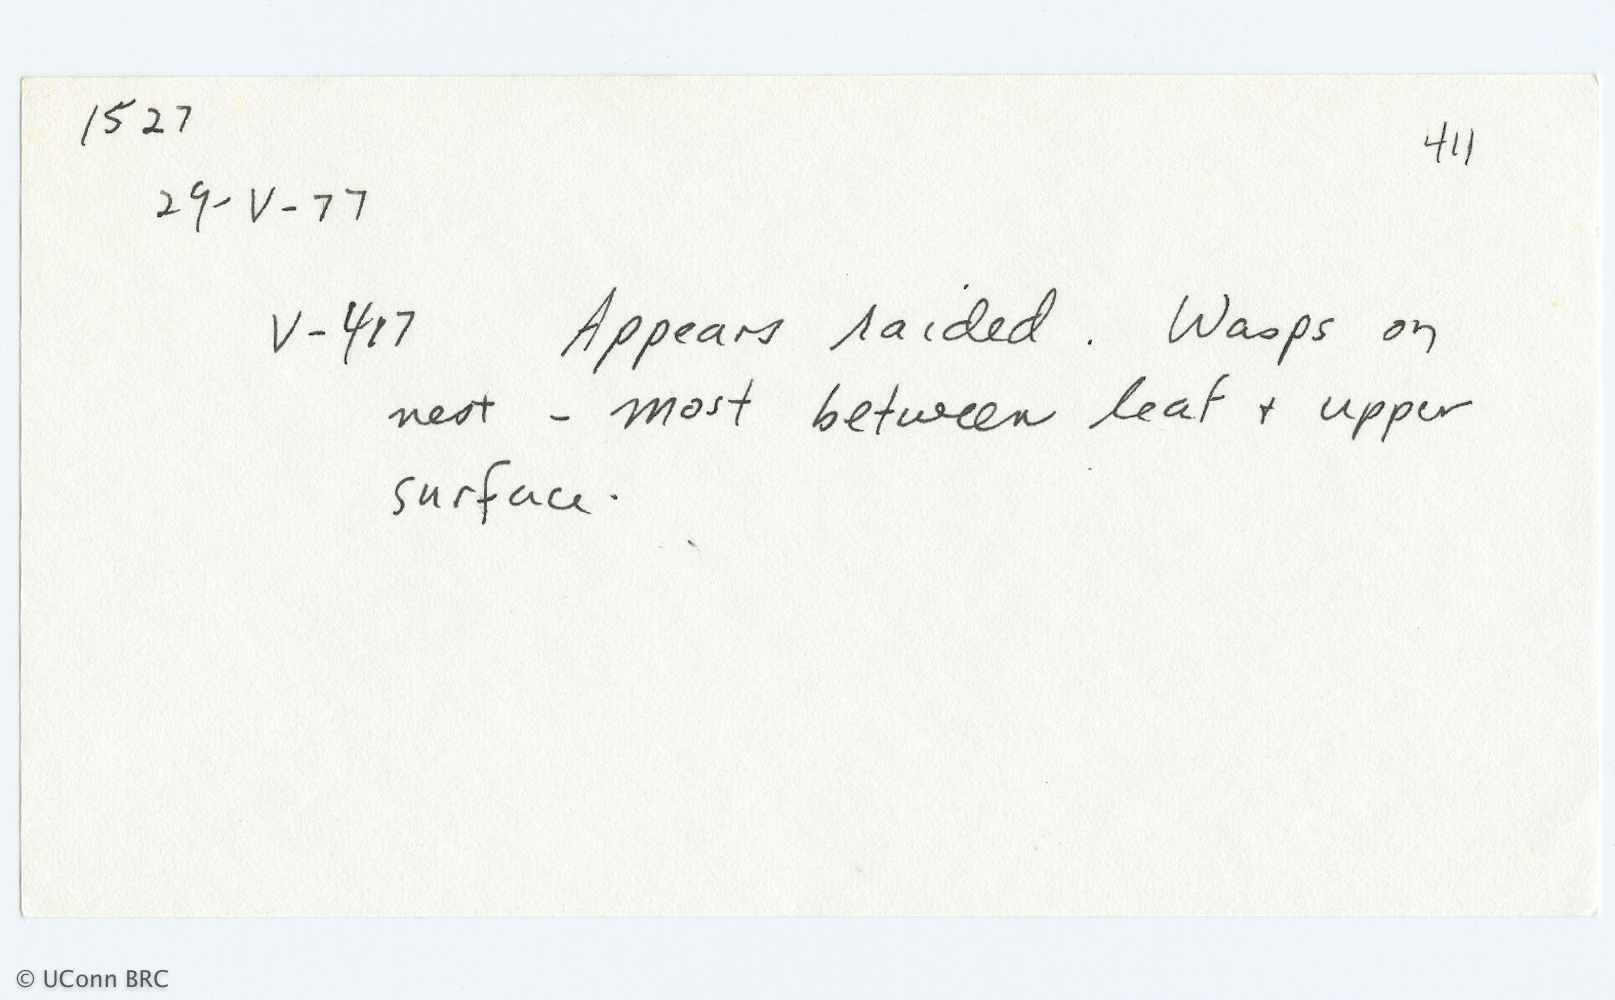 1527
411
29-V-77
V-417 Appears raided. Wasps on
nest - most between leaf + upper
surface.
© UConn BRC